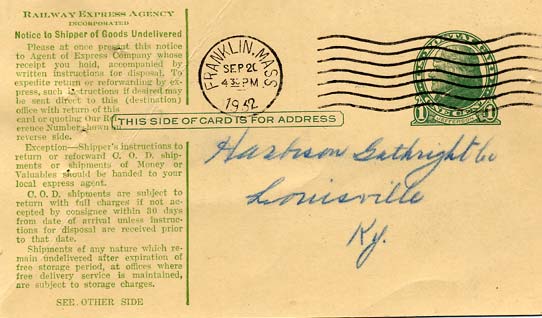 RAILWAY EXPRESS AGENCY
INCORPORATED
Notice to Shipper of Goods Undelivered
Please at once present this notice
to Agent of Express Company whose
receipt you hold, accompanied by
written instructions for disposal. To
expedite return or reforwarding by ex-
press, such instructions if desired may
be sent direct to this (destination)
office with return of this
card or quoting Our Ref-
erence Number shown on
reverse side.
Exception—Shipper's instructions to
return or reforward C. O. D. ship-
ments or shipments of Money or
Valuables should be handed to your
local express agent.
C. O. D. shipments are subject to
return with full charges if not ac-
cepted by consignee within 30 days
from date of arrival unless instruc-
tions for disposal are received prior
to that date.
Shipments of any nature which re-
main undelivered after expiration of
free storage period, at offices where
free delivery service is maintained,
are subject to storage charges.
SEE OTHER SIDE
FRANKLIN, MASS
SEP 20
4 30 PM
1942
THIS SIDE OF CARD IS FOR ADDRESS
1 JEFFERSON 1
Harbison Gathright Co
Louisville
Ky.